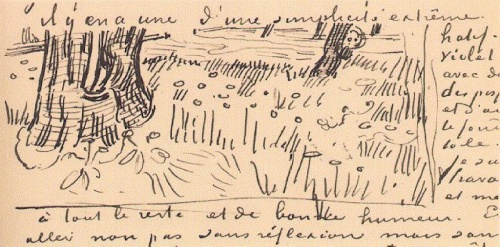 il y en a une d'une simplicité extrême.
violet
avec d
des po
et d'a
le fon
Je su
trava
et me
à tout le reste et de bonne humeur. E
aller non pas sans réflexion mais san